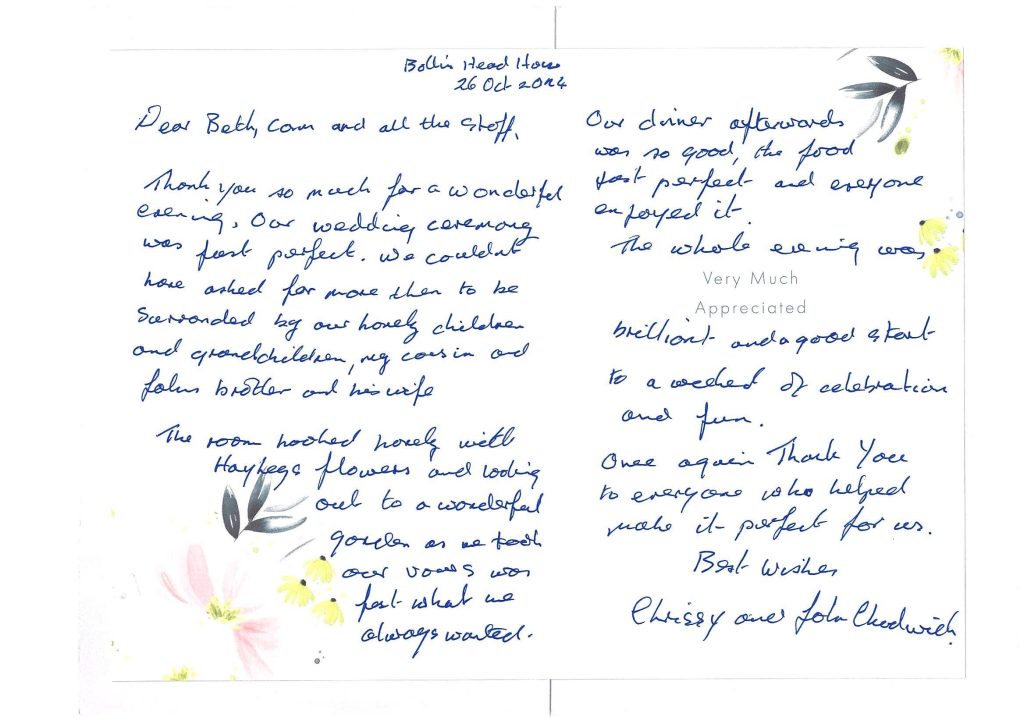 Bollin Head House
26 Oct 2024
Dear Beth, Cam and all the staff,
Thank you so much for a wonderful
evening. Our wedding ceremony
was just perfect. We couldn't
have asked for more then to be
Surronded by our lovely children
and grandchildren, my cousin and
Johns brother and his wife
The room looked lovely with
flowers and looking
out to a wonderful
garden as we took
our vows was
just what we
always wanted.
Our dinner afterwards
was so good, the food
just perfect and everyone
enjoyed it.
The whole evening was
Very Much
Appreciated
brilliant and a good start
to a weekend of celebration
and fun.
Once again Thank You
to everyone who helped
make it perfect for us.
Best Wishes
Chrissy and John Chadwick.